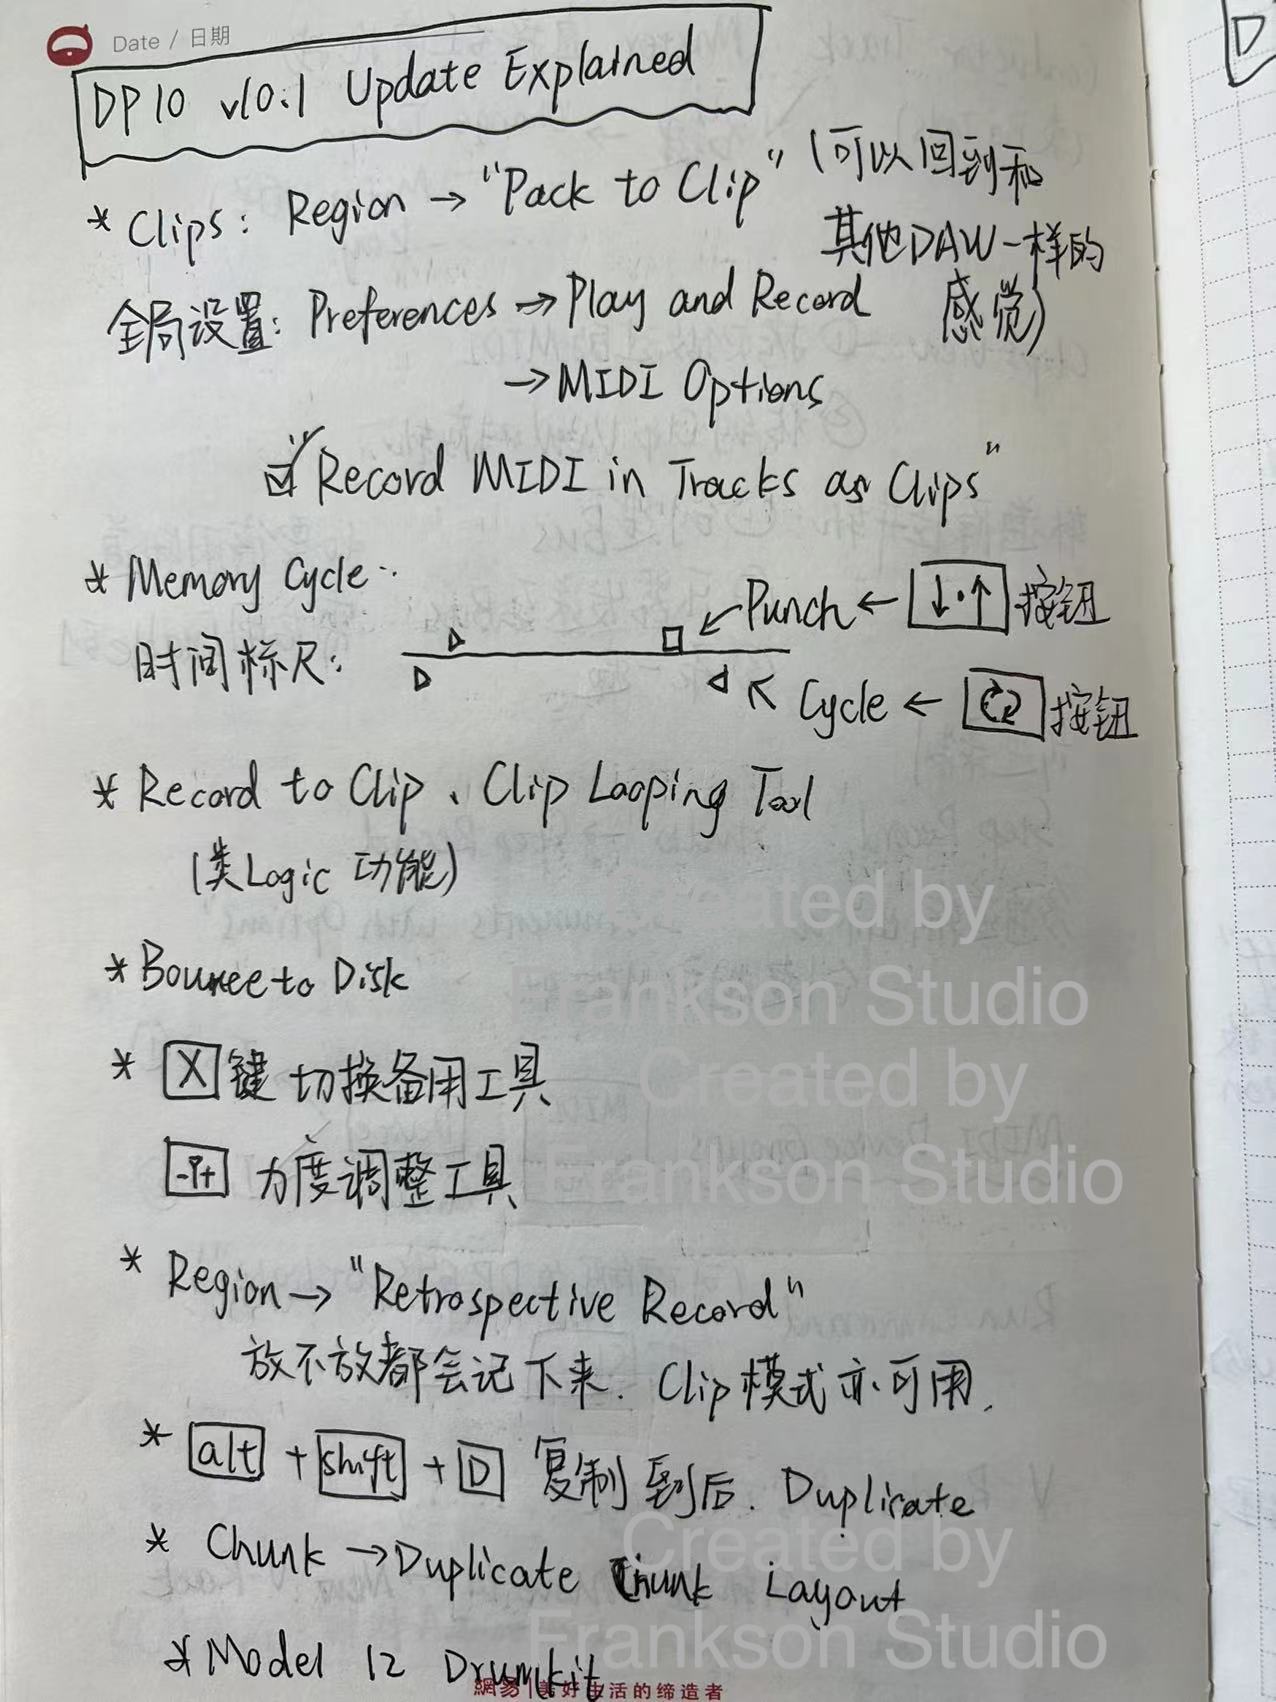 Date / 日期
DP10 v10.1 Update Explained
* Clips: Region → "Pack to Clip" (可以回到和
其他DAW一样的
感觉)
全局设置: Preferences → Play and Record
→ MIDI Options
☑ "Record MIDI in Tracks as Clips"
* Memory Cycle:
Punch ← ↓·↑ 按钮
时间标尺:
Cycle ← 按钮
* Record to Clip、Clip Looping Tool
(类Logic 功能)
* Bounce to Disk
* X 键 切换备用工具
力度调整工具
* Region → "Retrospective Record"
放不放都会记下来. Clip模式亦可用.
* alt + shift + D 复制到后. Duplicate
* Chunk → Duplicate Chunk Layout
* Model 12 Drumkit
網易 | 美好生活的缔造者
D
Created by
Frankson Studio
Created by
Frankson Studio
Created by
Frankson Studio